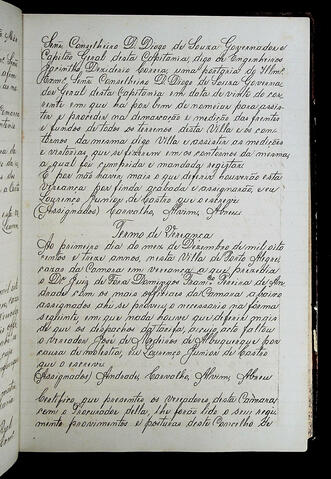 Senr. Conselheiro D. Diogo de Souza Governador e
Capitão Geral desta Capitania, digo de Engenheiros
Jacintho Dezederio Correia, uma portaria do Illmo.
Exmo. Senr. Conselheiro D. Diogo de Souza Governa-
dor Geral desta Capitania em data de vinte do cor-
rente em que ha por bem de nomeiar para assis-
tir e proceder na demarcação e medição das frentes
e fundos de todos os terrenos desta Villa e os con-
tornos da mesma digo Villa e assistir as medições
e vistorias que se fizerem em os contornos da mesma,
a qual foi cumprida e mandada registar.
E por não haver mais o que deferir houverão esta
vereança por finda acabada e assignarão, e eu
Lourenço Junior de Castro que o escrevi
(Assignados) Carvalho, Alvim, Abreu
Termo de Vereança
Ao primeiro dia do mez de Dezembro de mil oito
centos e treze annos, nesta Villa de Porto Alegre
cazas da Camara em vereança a que prezidio
o Dr. Juiz de Fora Domingos Franco. Pereira de An-
drade com os mais officiaes da Camara, abaixo
assignados, ahi se proveu o necessario na forma
seguinte, em que nada houve que deferir mais
do que os despachos da tarifa, a cujo acto faltou
o vereador José de Medeiros de Albuquerque por
cauza de molestia, eu Lourenço Junior de Castro
que o escrevi
(Assignados) Andrade, Carvalho, Alvim, Abreu
Certifico que presentes os vereadores desta Camara
com o Procurador della, lhe forão lido o seu regi-
mento provimentos e posturas deste Concelho de